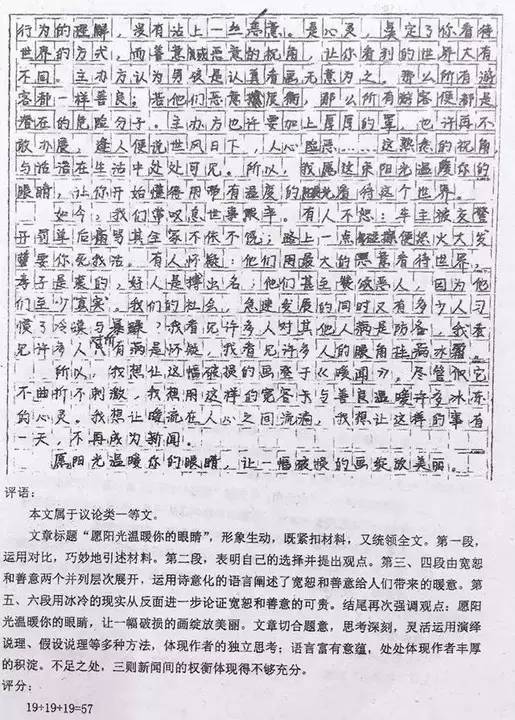 行为的理解，没有沾上一丝恶意。是心灵，奠定了你看待
世界的方式，而善意或恶意的视角，让你看到的世界大有
不同。主办方认为男孩是认真看画无意为之，那么所有游
客都一样善良；若他们恶意揣度，那么所有游客便都是
潜在的危险分子。主办方也许要加上厚厚的罩，也许再不
敢办展，逢人便说世风日下，人心险恶……这熟悉的视角
与话语在生活中处处可见。所以，我愿这束阳光温暖你的
眼睛，让你开始懂得用带有温度的眼光看待这个世界。
如今，我们常叹息世事艰辛。有人不恕：车主被交警
开罚单后痛骂其全家不依不饶；路上一点碰擦便怒火大发
有人怀疑：他们用最大的恶意看待世界，
孝子是装的，好人是搏出名，他们甚至赞成恶人，因为他
们至少真实。我们的社会，急速发展的同时又有多少人习
惯了冷漠与暴躁？我看见许多人对其他人满是防备，我看
见许多人只有满是怀疑，我看见许多人的眼角挂满冰霜。
所以，我想让这幅破损的画登于《暖闻》，尽管似它
不曲折不刺激，我想用这样的宽容与善良温暖许多冰冻
的心灵。我想让暖流在人心之间流淌，我想让这样的事有
一天，不再成为新闻。
愿阳光温暖你的眼睛，让一幅破损的画绽放美丽。
评语：
本文属于议论类一等文。
文章标题“愿阳光温暖你的眼睛”，形象生动，既紧扣材料，又统领全文。第一段，
运用对比，巧妙地引述材料。第二段，表明自己的选择并提出观点。第三、四段由宽恕
和善意两个并列层次展开，运用诗意化的语言阐述了宽恕和善意给人们带来的暖意。第
五、六段用冰冷的现实从反面进一步论证宽恕和善意的可贵。结尾再次强调观点：愿阳
光温暖你的眼睛，让一幅破损的画绽放美丽。文章切合题意，思考深刻，灵活运用演绎
说理、假设说理等多种方法，体现作者的独立思考；语言富有意蕴，处处体现作者丰厚
的积淀。不足之处，三则新闻间的权衡体现得不够充分。
评分：
19+19+19=57